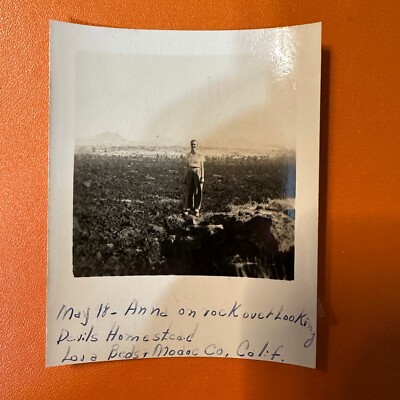 May 18 - Anna on rock overlooking
Devils Homestead
Lava Beds, Modoc Co, Calif.